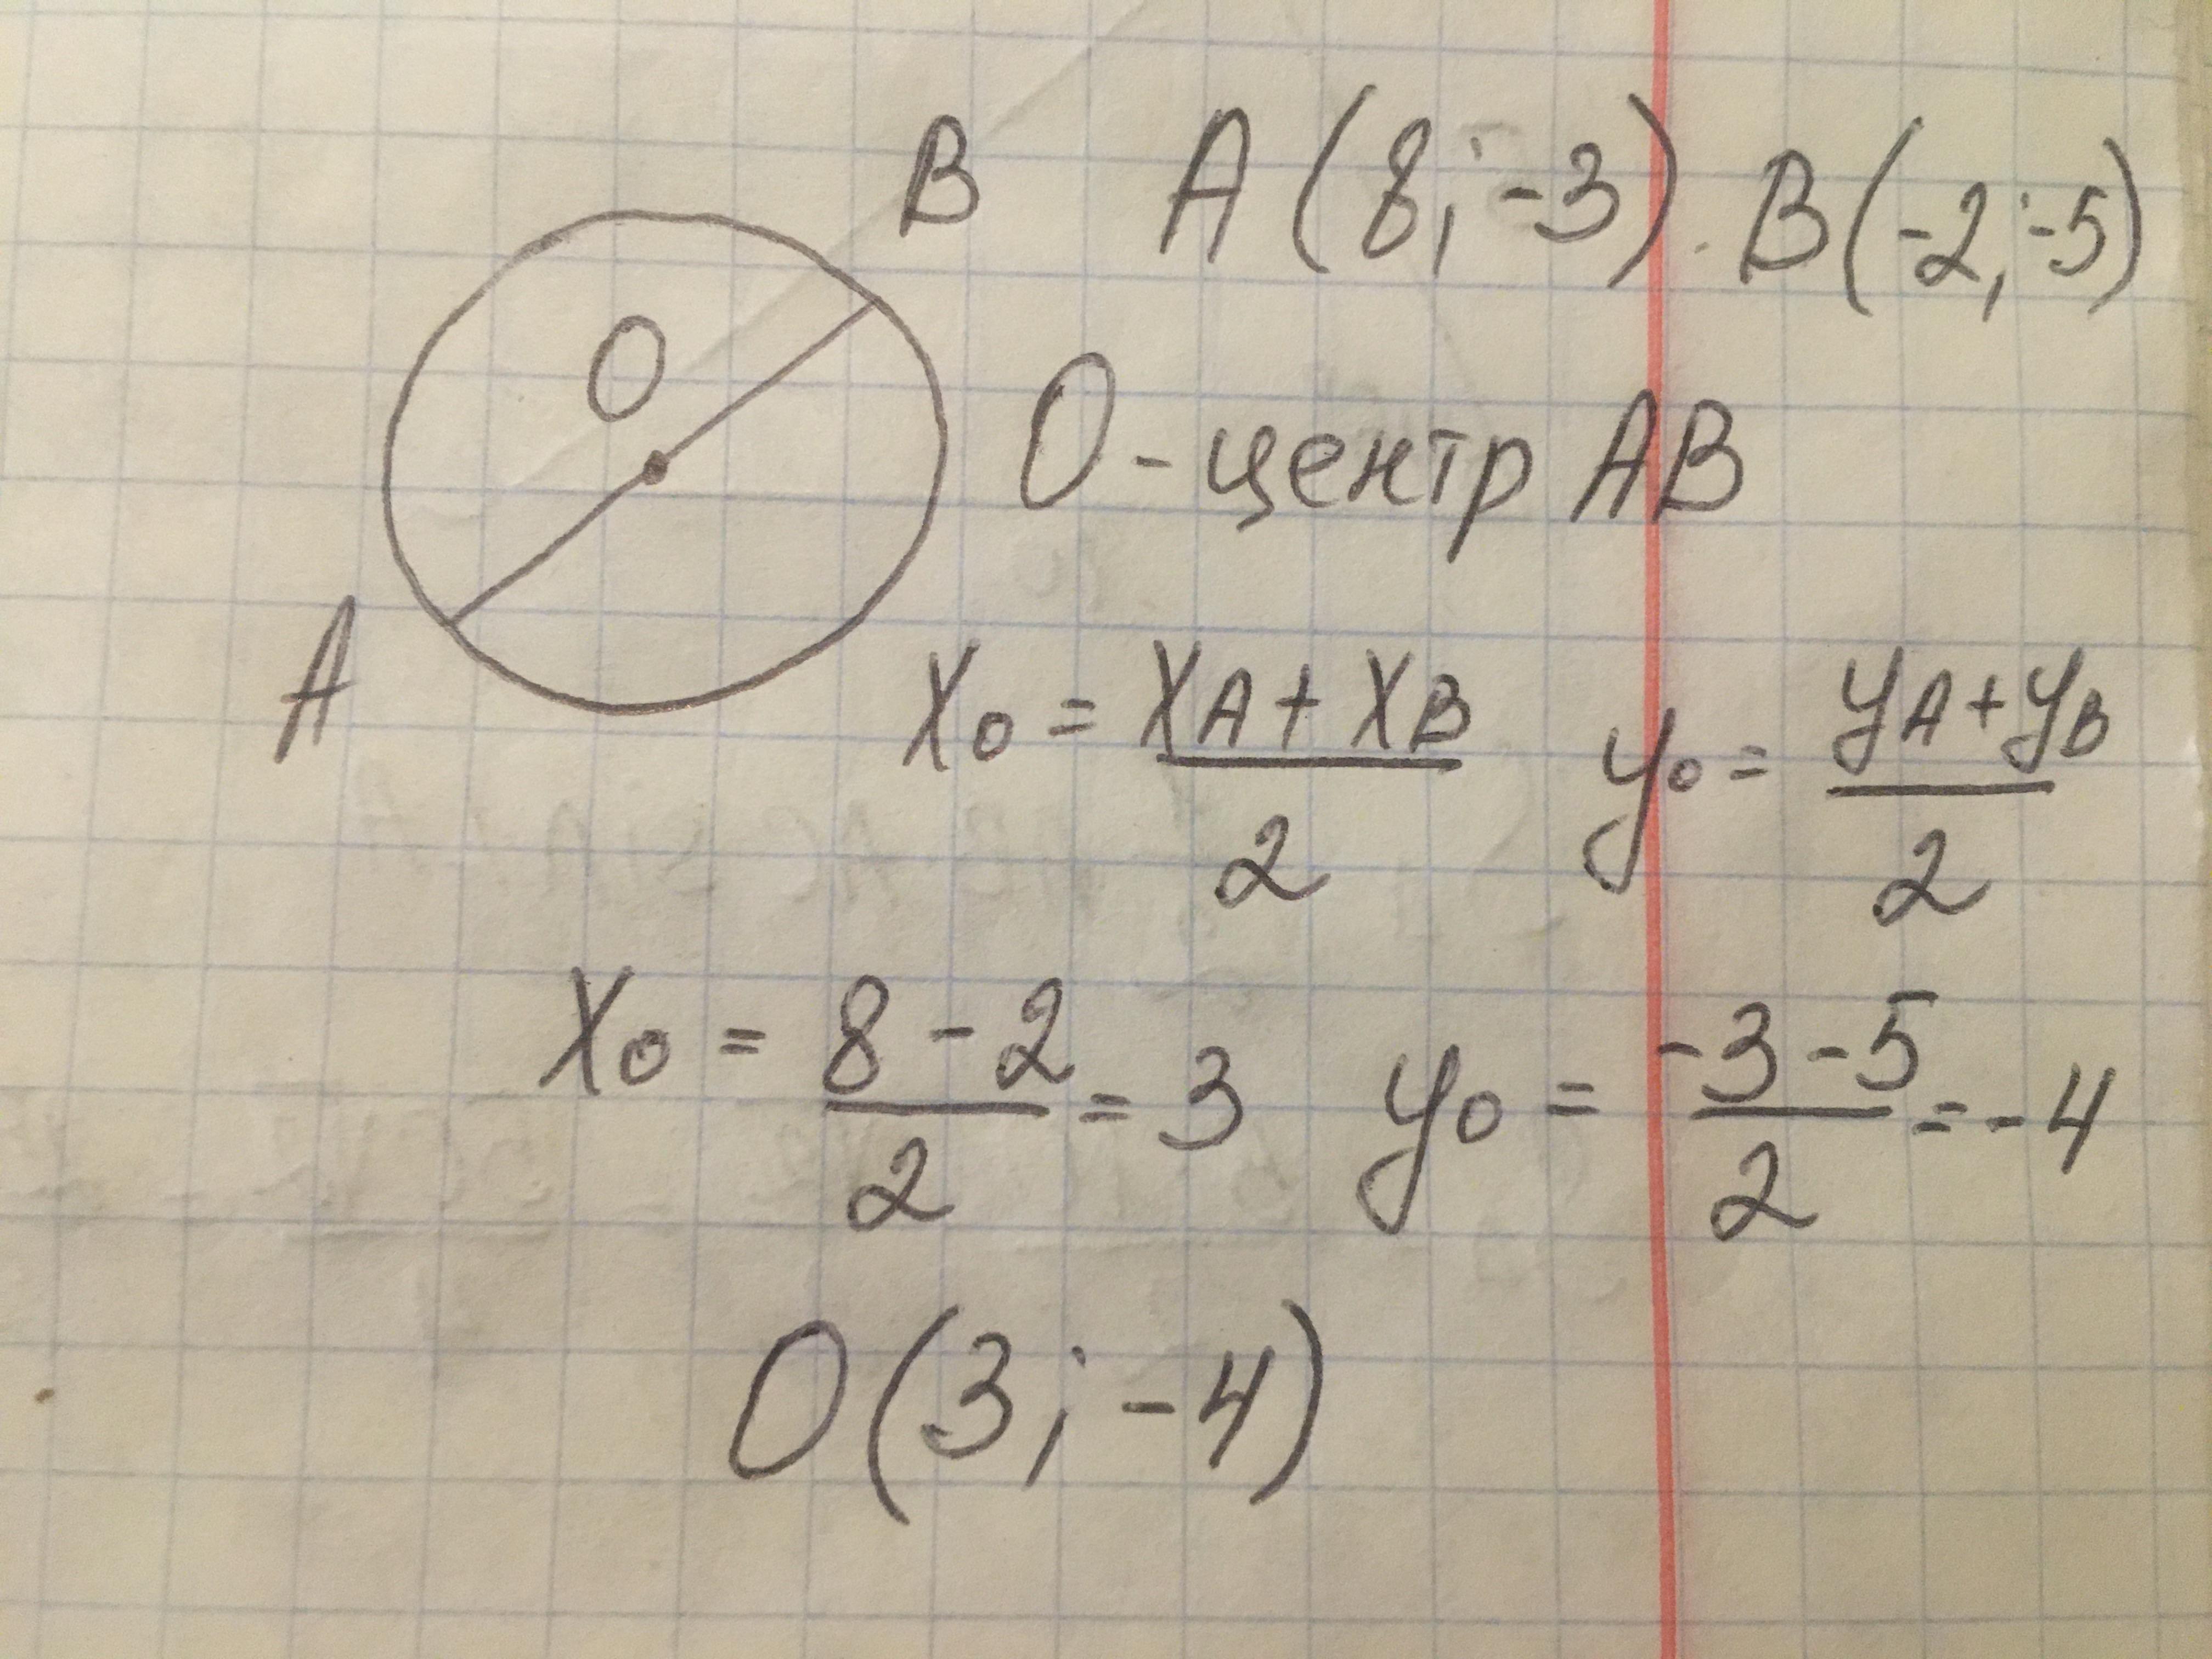 B A(8; -3). B(-2; -5)
O
O - центр AB
A
X₀ = (X_A + X_B)/2 y₀ = (y_A + y_B)/2
X₀ = (8 - 2)/2 = 3 y₀ = (-3 - 5)/2 = -4
O(3; -4)